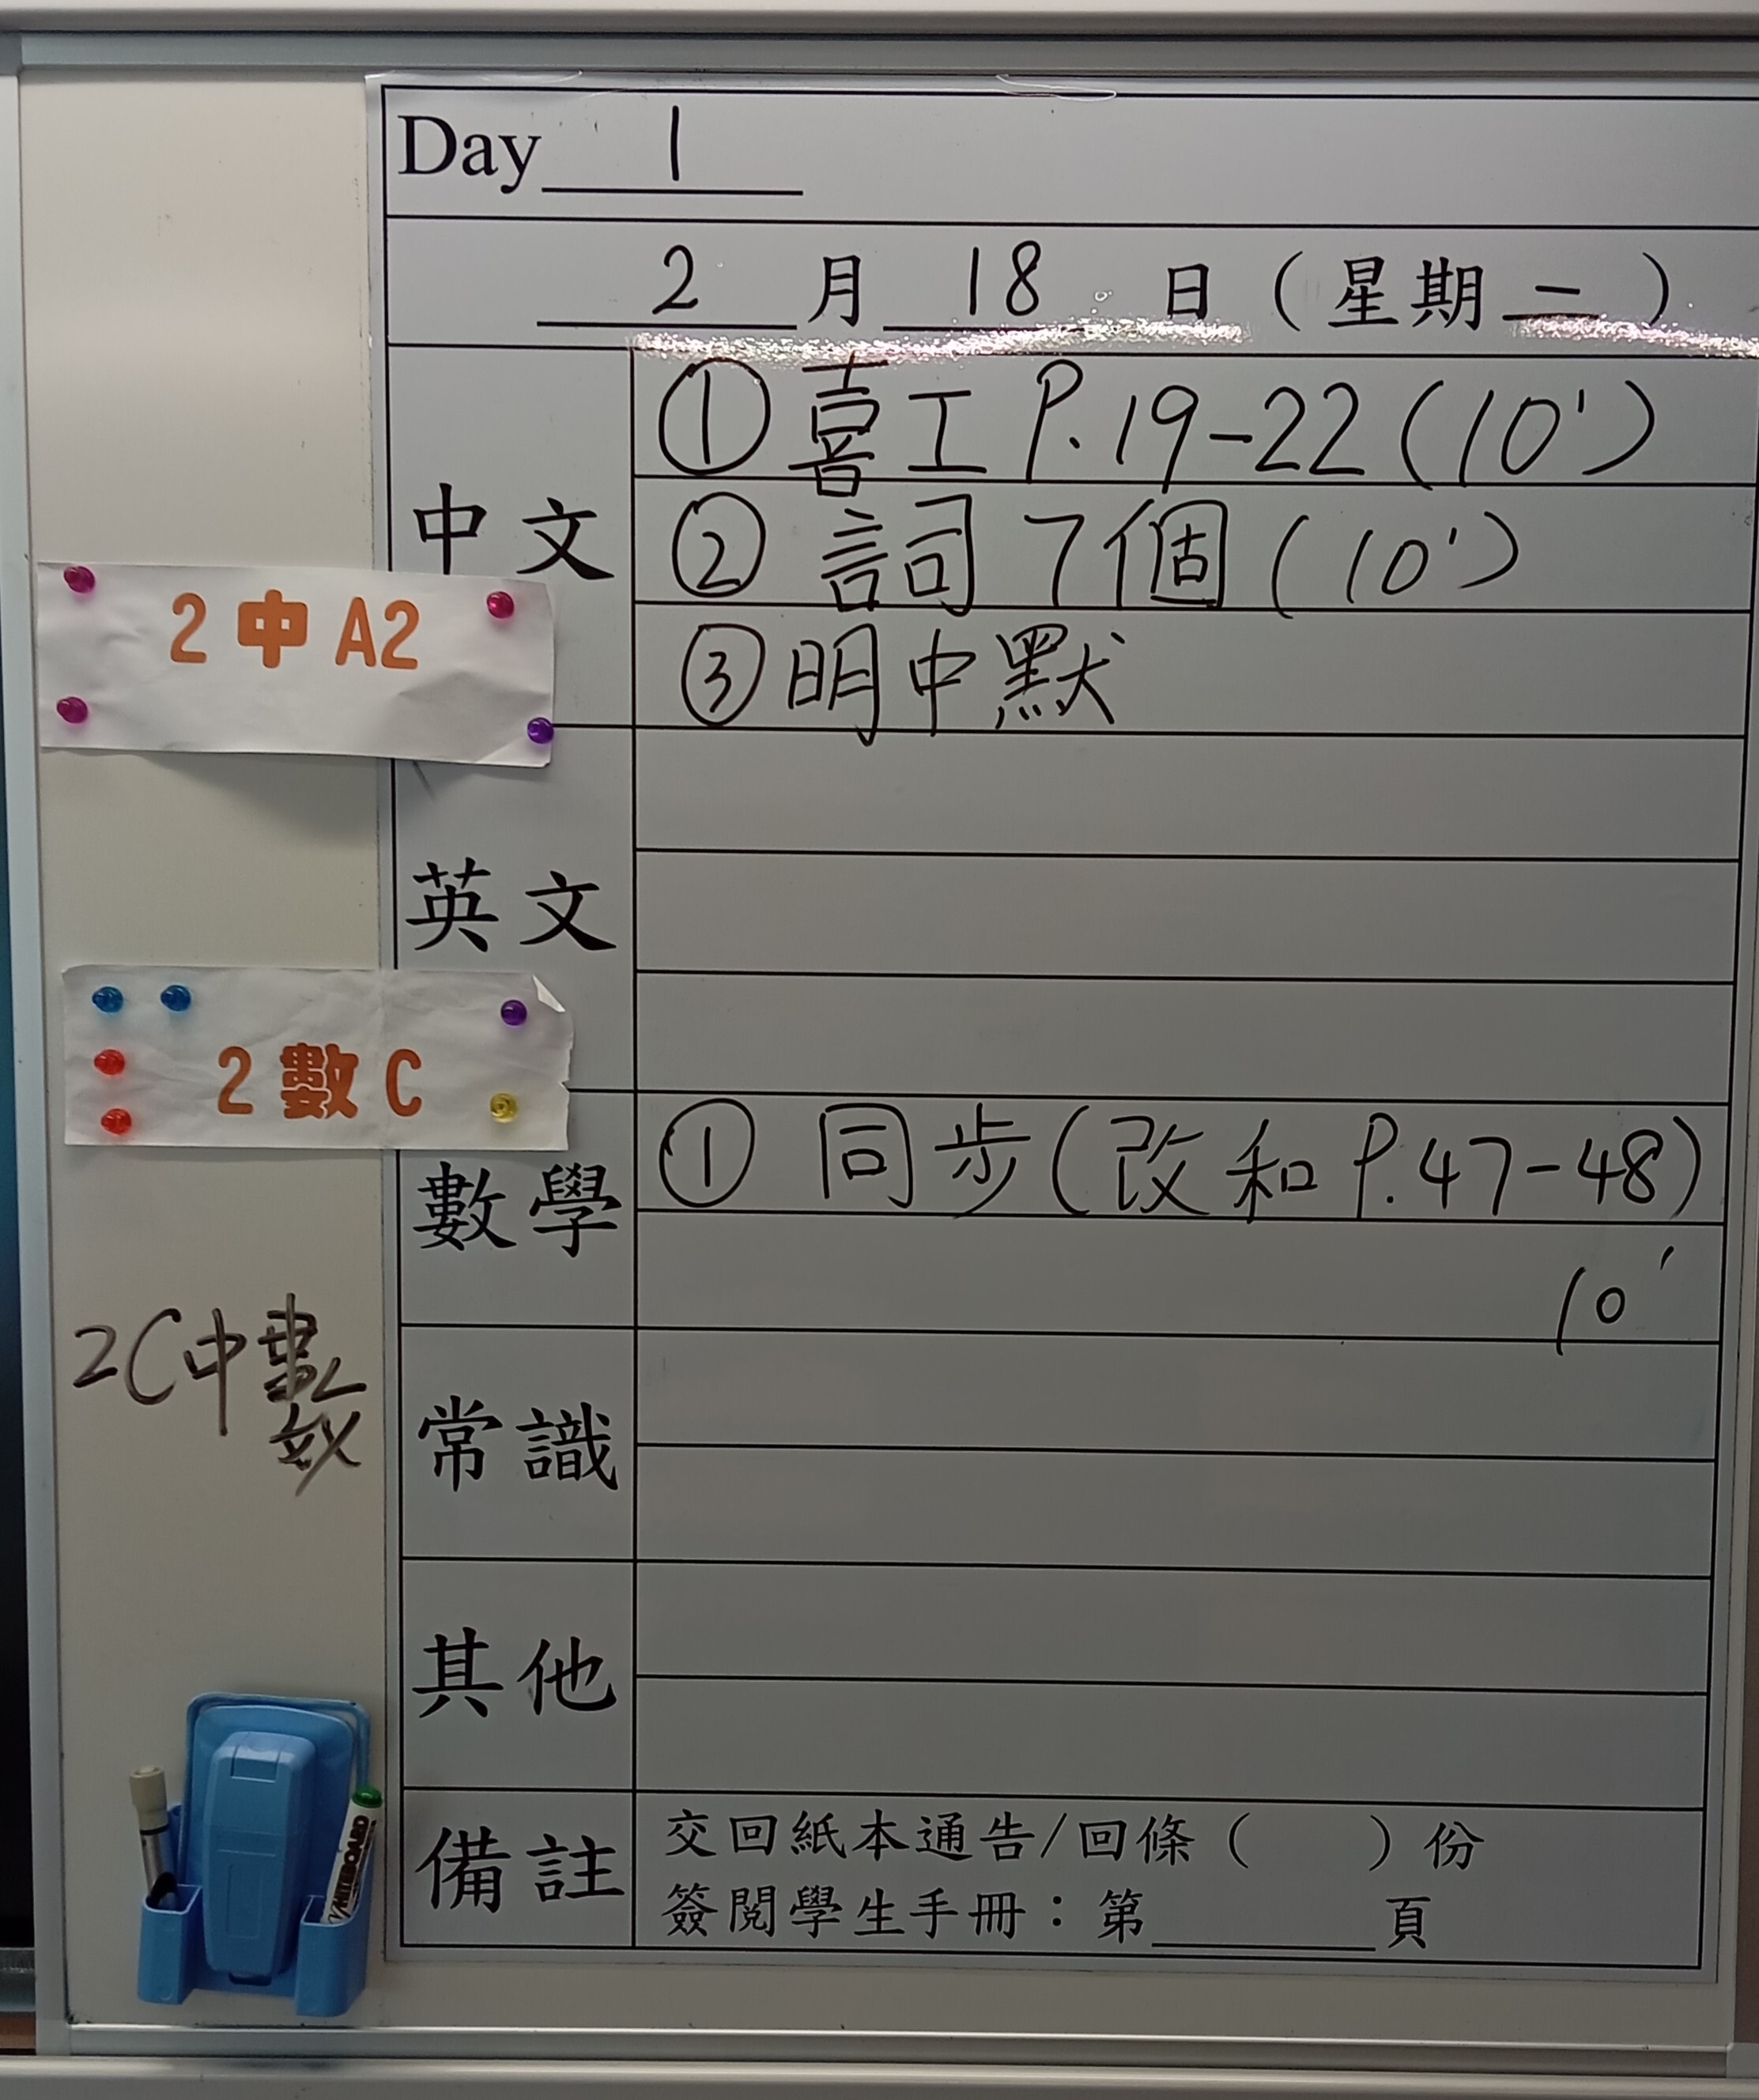 Day 1
2 月 18 日 (星期一)
中文
① 喜工 P.19-22 (10')
② 詞 7個 (10')
③ 明中默
2 中 A2
英文
2 數 C
數學
① 同步 (改和 P.47-48)
10'
2C中數
常識
其他
備註
交回紙本通告/回條 ( ) 份
簽閱學生手冊：第 頁
WHITEBOARD